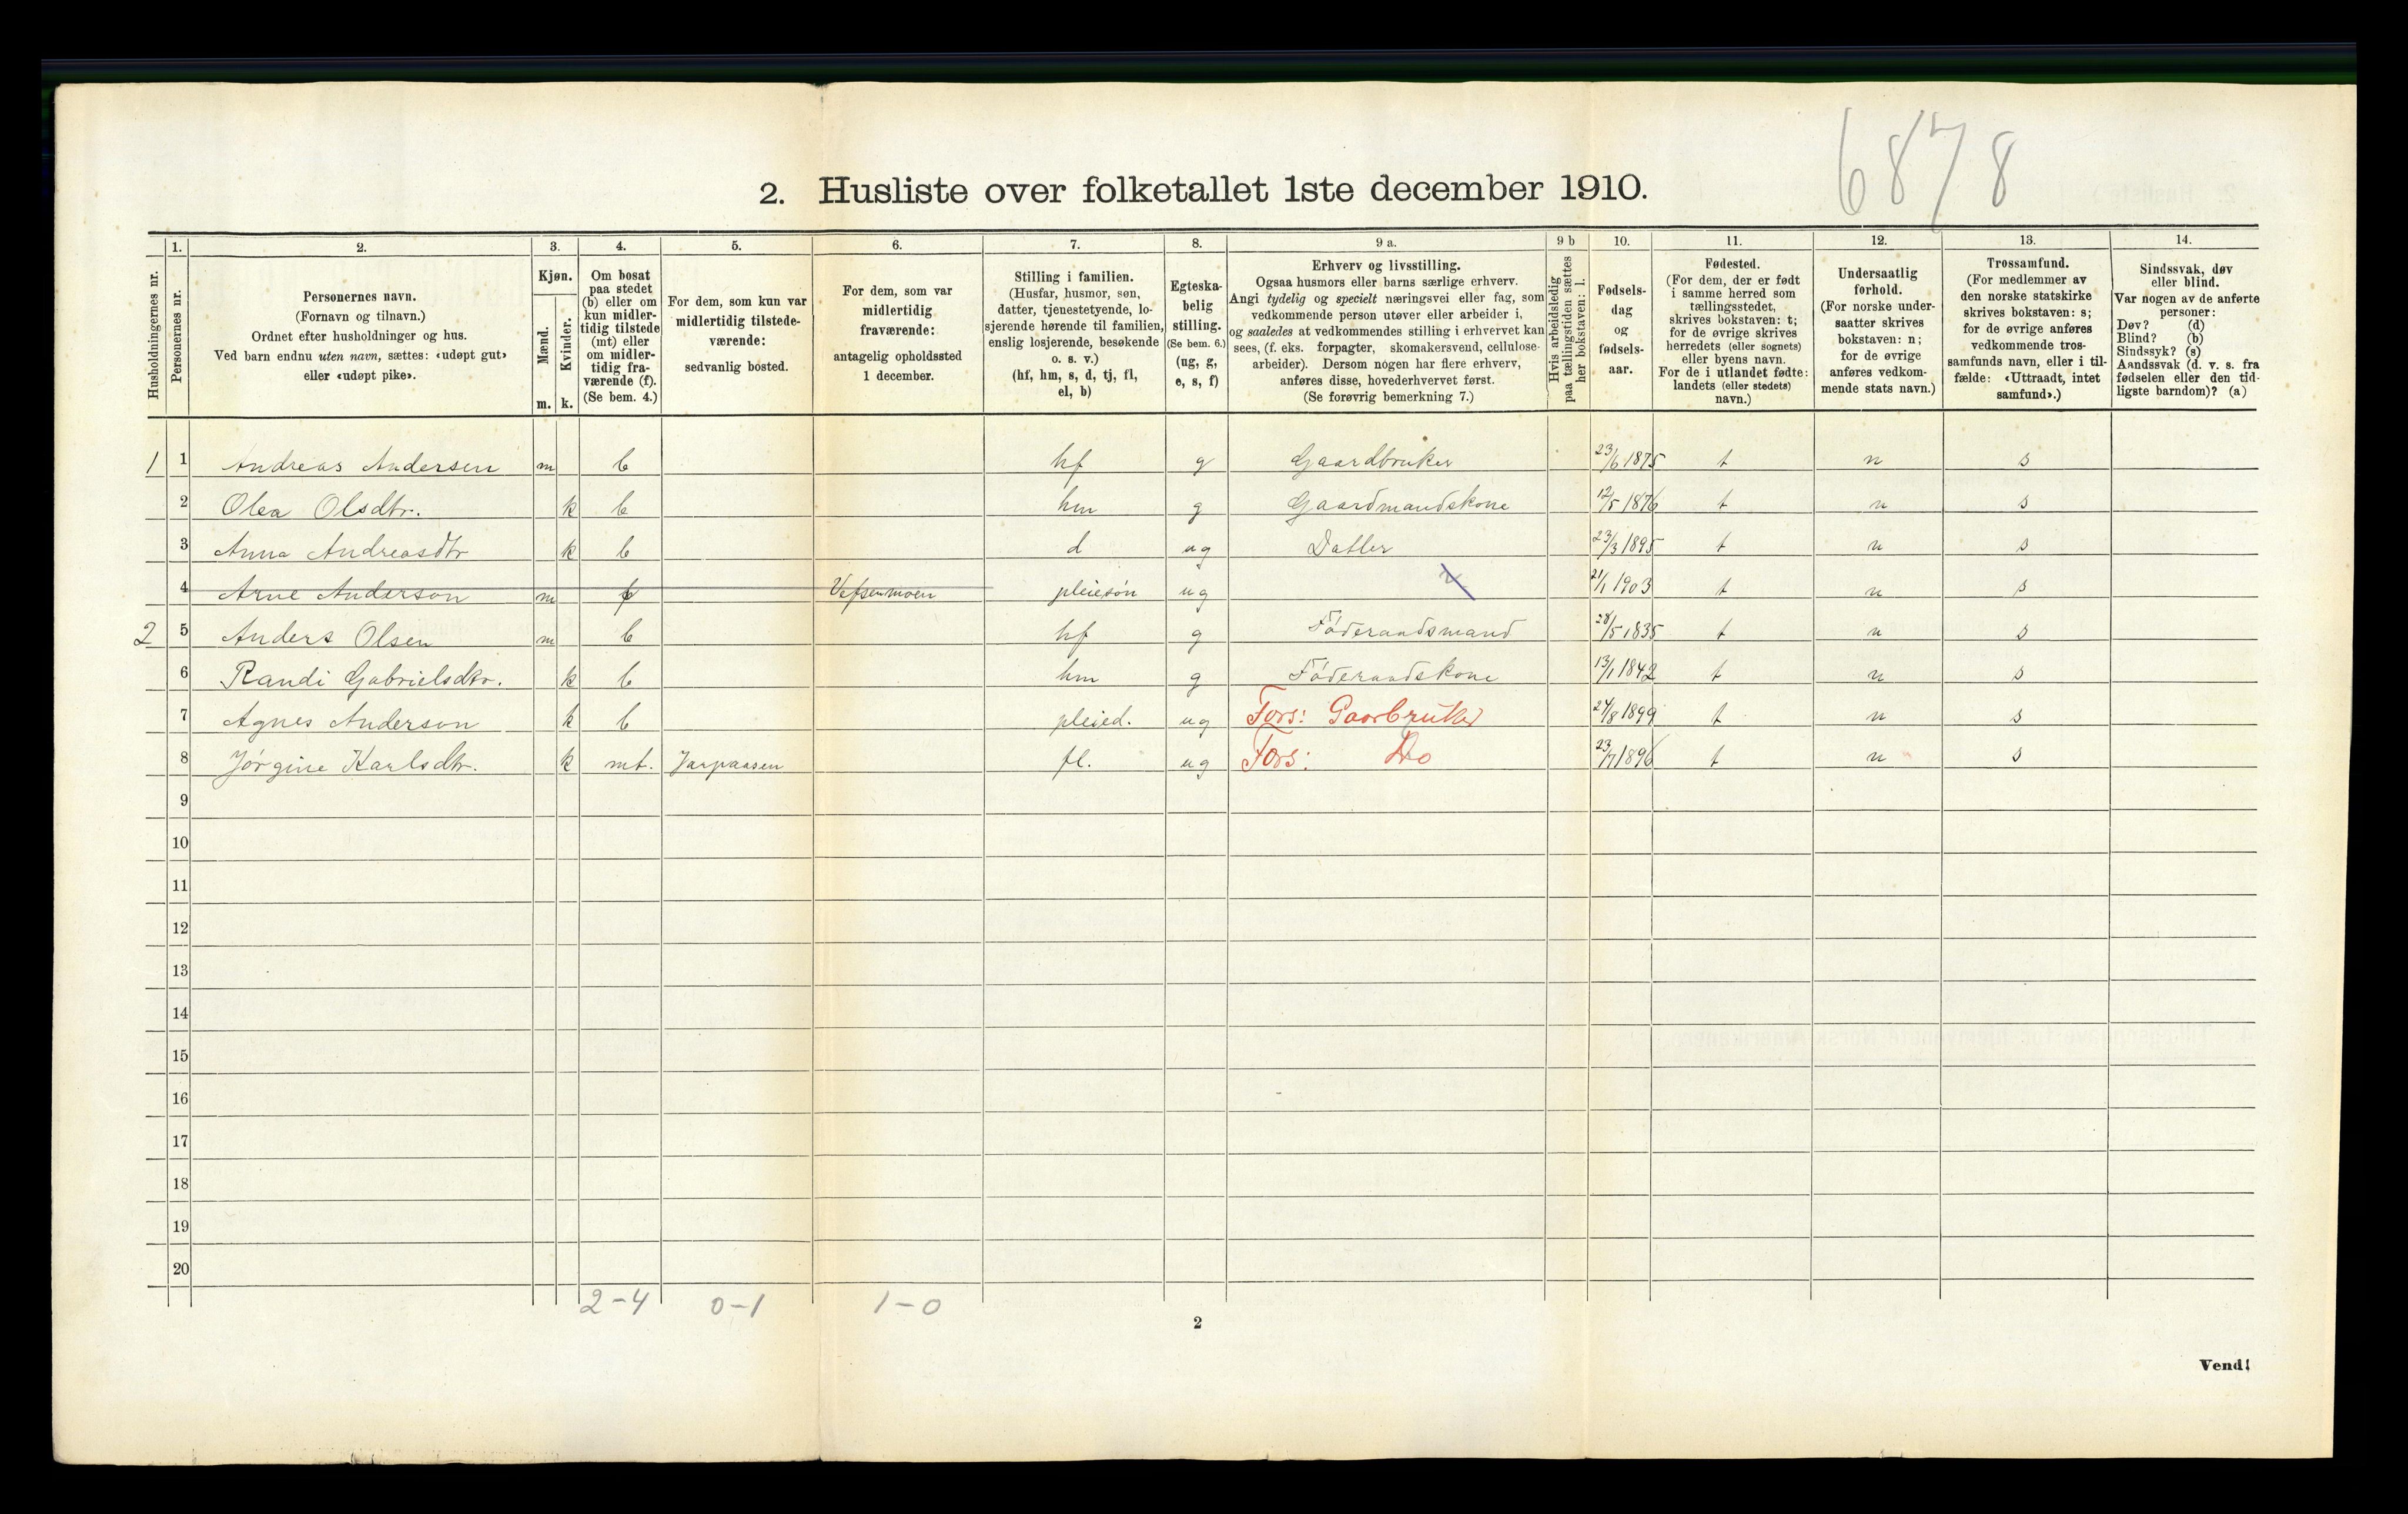 6878
2. Husliste over folketallet 1ste december 1910.
Husholdningernes nr.
1.
Personernes nr.
2.
Personernes navn.
(Fornavn og tilnavn.)
Ordnet efter husholdninger og hus.
Ved barn endnu uten navn, sættes: «udøpt gut»
eller «udøpt pike».
3.
Kjøn.
Mænd.
Kvinder.
m. k.
4.
Om bosat
paa stedet
(b) eller om
kun midler-
tidig tilstede
(mt) eller
om midler-
tidig fra-
værende (f).
(Se bem. 4.)
5.
For dem, som kun var
midlertidig tilstede-
værende:
sedvanlig bosted.
6.
For dem, som var
midlertidig
fraværende:
antagelig opholdssted
1 december.
7.
Stilling i familien.
(Husfar, husmor, søn,
datter, tjenestetyende, lo-
sjerende hørende til familien,
enslig losjerende, besøkende
o. s. v.)
(hf, hm, s, d, tj, fl,
el, b)
8.
Egteska-
belig
stilling.
(Se bem. 6.)
(ug, g,
e, s, f)
9 a.
Erhverv og livsstilling.
Ogsaa husmors eller barns særlige erhverv.
Angi tydelig og specielt næringsvei eller fag, som
vedkommende person utøver eller arbeider i,
og saaledes at vedkommendes stilling i erhvervet kan
sees, (f. eks. forpagter, skomakersvend, cellulose-
arbeider). Dersom nogen har flere erhverv,
anføres disse, hovederhvervet først.
(Se forøvrig bemerkning 7.)
9 b
Hvis arbeidsledig
paa tællingstiden sættes
her bokstaven: l.
10.
Fødsels-
dag
og
fødsels-
aar.
11.
Fødested.
(For dem, der er født
i samme herred som
tællingsstedet,
skrives bokstaven: t;
for de øvrige skrives
herredets (eller sognets)
eller byens navn.
For de i utlandet fødte:
landets (eller stedets)
navn.)
12.
Undersaatlig
forhold.
(For norske under-
saatter skrives
bokstaven: n;
for de øvrige
anføres vedkom-
mende stats navn.)
13.
Trossamfund.
(For medlemmer av
den norske statskirke
skrives bokstaven: s;
for de øvrige anføres
vedkommende tros-
samfunds navn, eller i til-
fælde: «Uttraadt, intet
samfund».)
14.
Sindssvak, døv
eller blind.
Var nogen av de anførte
personer:
Døv? (d)
Blind? (b)
Sindssyk? (s)
Aandssvak (d. v. s. fra
fødselen eller den tid-
ligste barndom)? (a)
1 1 Andreas Andersen m b hf g Gaardbruker 23/6 1875 t n s
2 Olea Olsdtr. k b hm g Gaardmandskone 12/5 1876 t n s
3 Anna Andreasdtr k b d ug Datler 23/3 1895 t n s
4 Arne Anderson m f Vefsenmoen pleiesøn ug 21/1 1903 t n s
2 5 Anders Olsen m b hf g Föderaadsmand 28/5 1835 t n s
6 Randi Gabrielsdtr. k b hm g Föderaadskone 13/1 1842 t n s
7 Agnes Anderson k b pleied. ug Fors: Gaarbruker 24/8 1899 t n s
8 Jörgine Karlsdtr. k mt. fl. ug Fors: Do 23/7 1896 t n s
9
10
11
12
13
14
15
16
17
18
19
20
2-4 0-1 1-0
2
Vend!